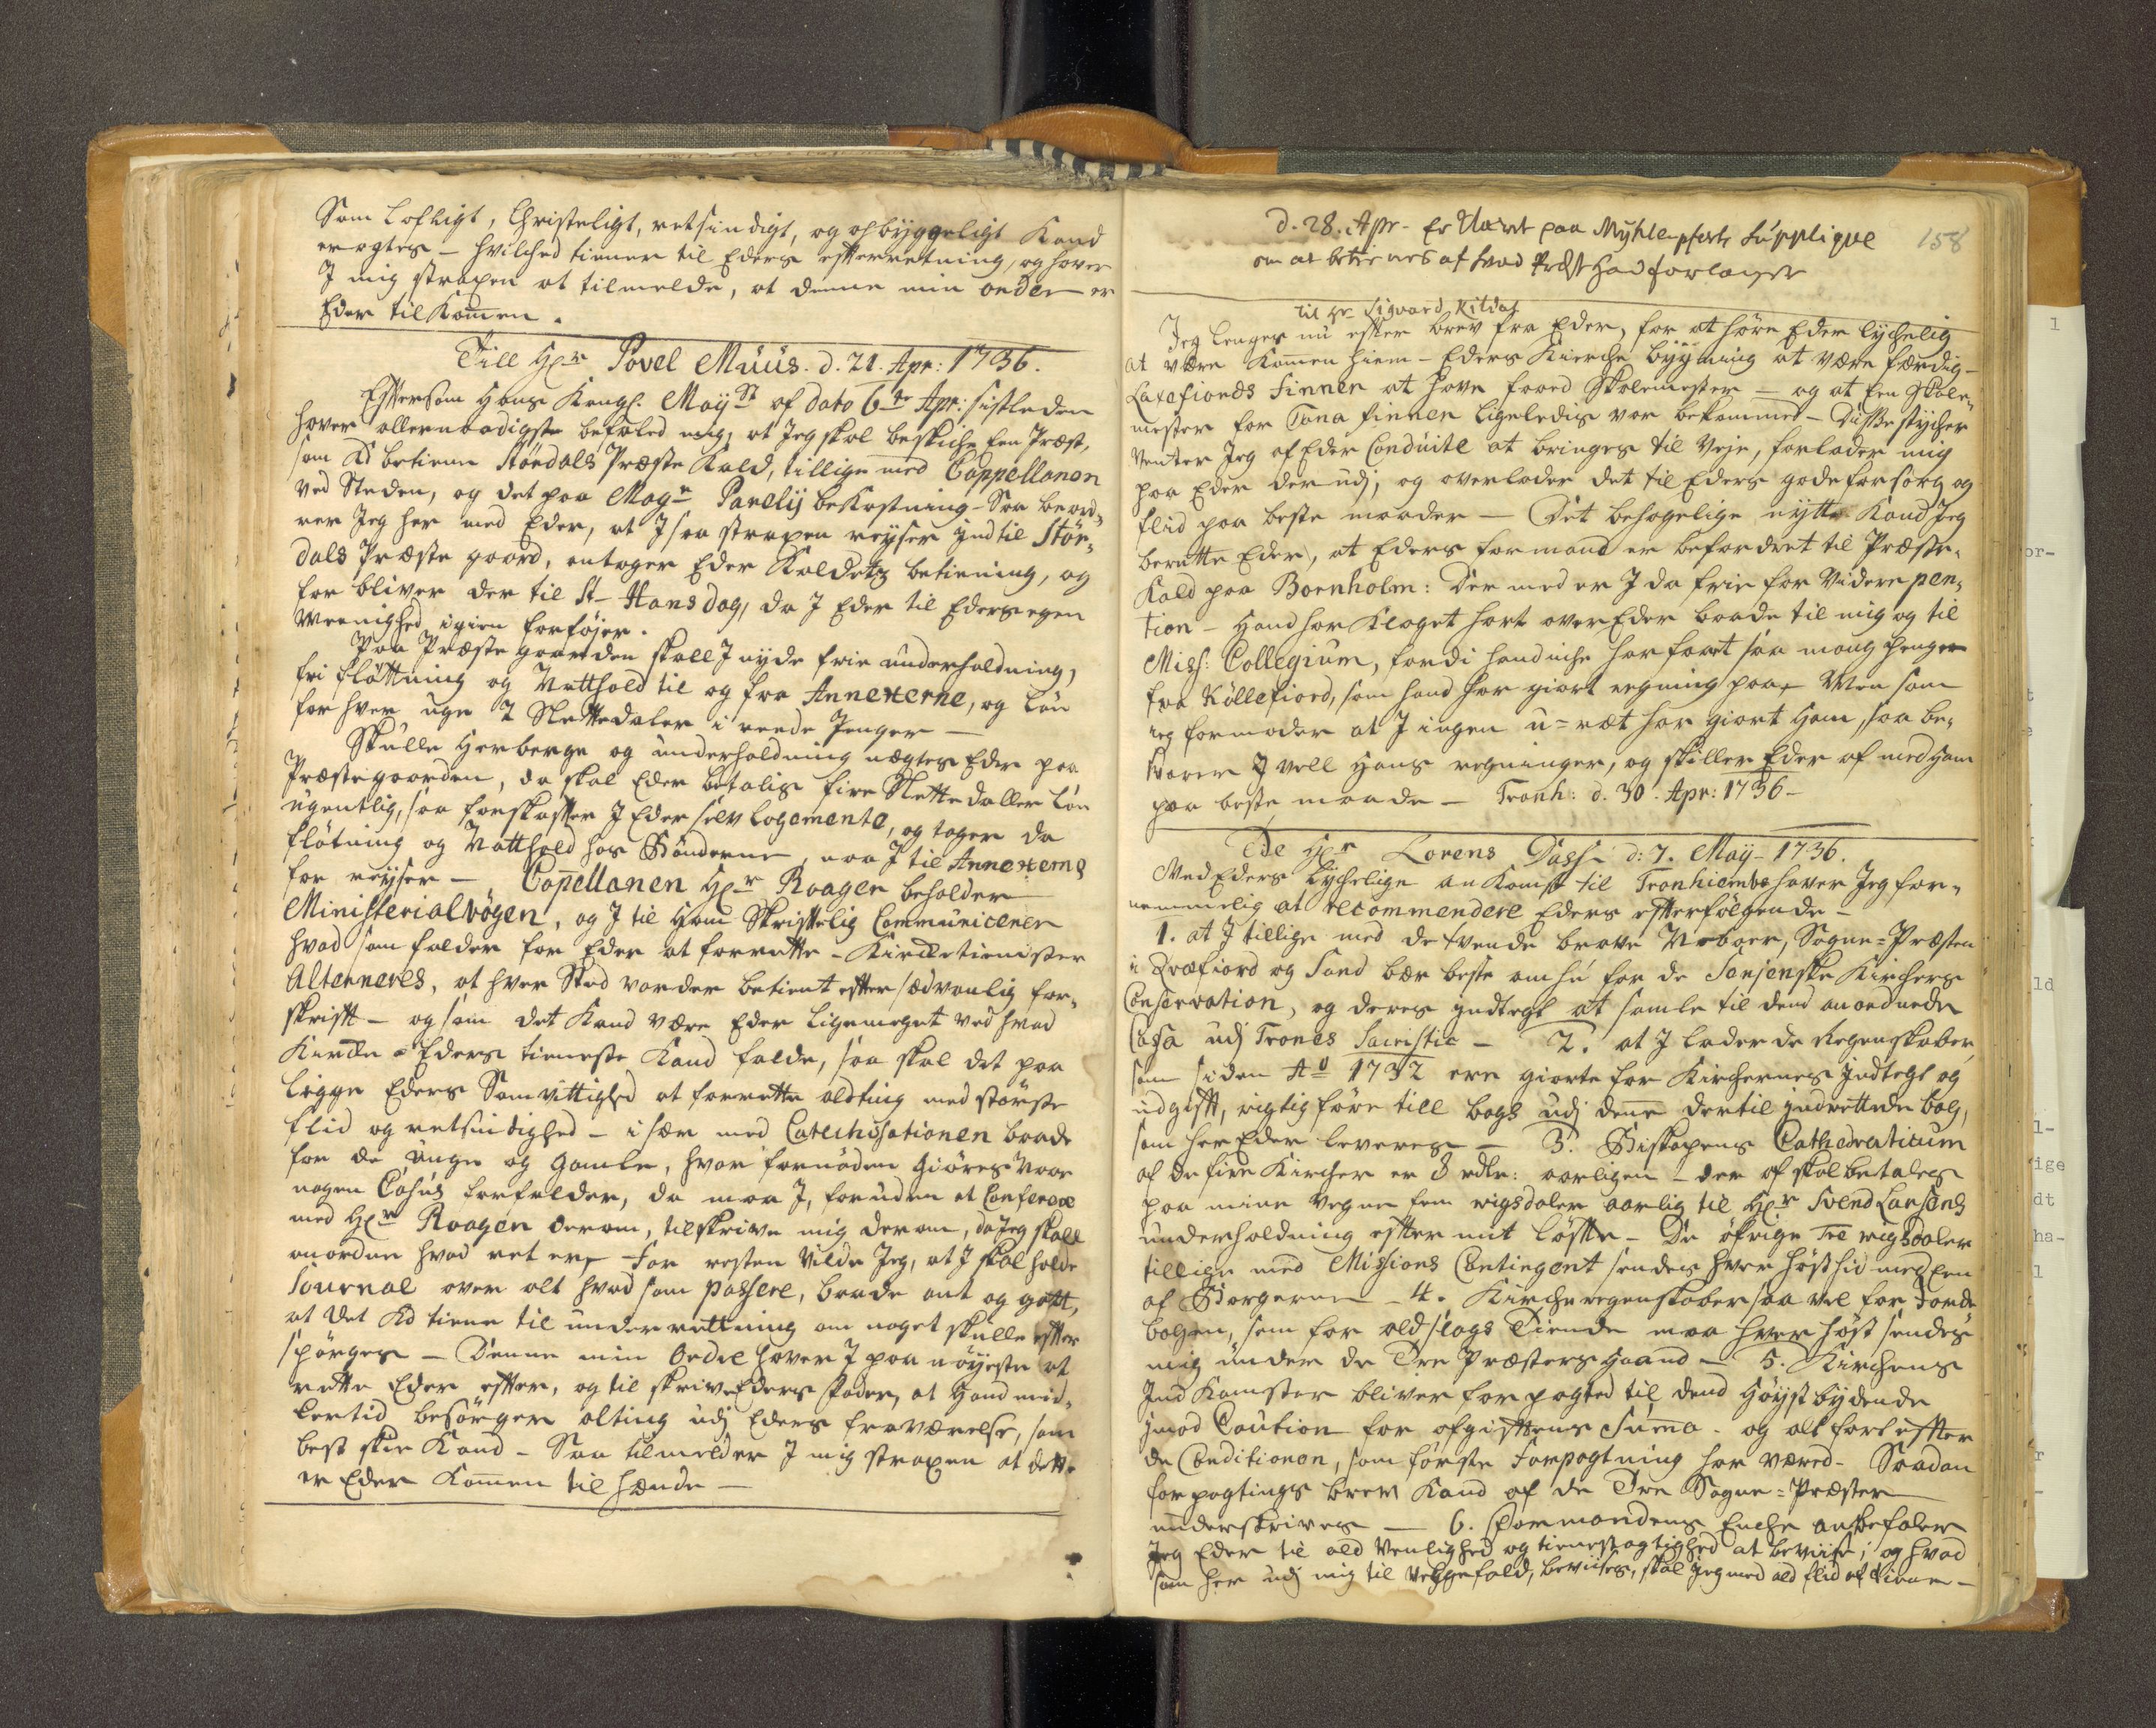 Som lofligt, Christeligt, retsindigt, og opbyggeligt kand
eragtes - hvilched tiener til Eders efterretning, og haver
I mig strapen at tilmelde, at denne min order er
Eder tilkommen.
Till Hr Povel Muus. d. 21. Apr: 1736.
Eftersom Hans Kongl. Mayst af dato 6te Apr: sistleden
haver allernaadigste befaled mig, at Jeg skal beskiche een Præst,
som kd betiene Störдals Præste kald, tillige med Cappellanen
ved Steden, og det paa Magr Parelij bekostning - Saa beord=
rer Jeg her med Eder, at I saa strapen reyser ind til Stör=
dals Præste gaard, antager Eder Kaldets betiening, og
for bliver der til St. Hans dag, da I Eder til Eders egen
meenighed igien forföjer.
Paa Præste gaarden skall I nyde frie underholdning,
fri fløttning og Natthold til og fra Annexerne, og lön
for hver uge 2 Slettedaler i reede Penger -
Skulle Herberge og underholdning nægtes Eder paa
Præstegaarden, da skal Eder betalis fire Slettedaller lön
ugentlig, saa forskaffer I Eder selv logemente, og tager da
fløtning og Natthold hos Bönderne, naar I til Annexerne
for reyser - Capellanen Hr Roagen beholder
Ministerialbögen, og I til Ham Skriftelig Communicerer
hvad som falder for Eder at forrette - Kirchetienester
Alterneres, at hver Stad vorder betient efter sædvanlig for=
skrift - og som det kand være Eder ligemeget ved hvad
Kirche Eders tieneste kand falde, saa skal det paa
ligge Eders Samvittighed at forrette alting med störste
flid og retsindighed - i sær med Catechisationen baade
for de unge og gamle, hvor fornöden giöres Naar
nogen Casus forefalder, da maa I, foruden at Conferere
med Hr Roagen derom, tilskrive mig derom, da Jeg skall
anordne hvad ret er - For resten Vilde Jeg, at I skal holde
Journal over alt hvad som passere, baade ont og gott,
at det kd tiene til underrettning om noget skulle efter
spörges - Denne min Ordre haver I paa nöyeste at
rette Eder efter, og til skrive Eders Fader, at Hand mid=
lertid besörger alting udj Eders fraværelse, som
best skee kand - Saa tilmelder I mig strapen at dette
er Eder kommen til hænde -
158
d. 28. Apr. - Er klaret paa Supplique
om at betienes af hvad Præst Hand forlanger
Til Hr. Sigvard Kildal
Jeg lenges nu efter brev fra Eder, for at höre Eder lychelig
at være kommen hiem - Eders Kirche bygning at være færdig -
Laxefiords Finner at have faaed Skolemester - og at een Skole=
mester for Tana finner ligeledis var bekommet - Disse stycher
venter Jeg af Eder Conduite at bringes til Veje, forlader mig
paa Eder der udj, og overlader det til Eders gode forsorg og
flid paa beste maader - Det behagelige nytt kand Jeg
berette Eder, at Eders formand er befordret til Præste=
Kald paa Bornholm: Der med er I da frie for Videre pen=
tion - Hand har klaget hart over Eder baade til mig og til
Miss: Collegium, fordi hand iche har faaet saa mang penger
fra Kiöllefiord, som hand har giort regning paa, Men som
ieg formoder at I ingen u=ræt har giort Ham, saa be=
svarer I vell Hans regninger, og skiller Eder af med Ham
paa beste maade - Tronh: d. 30. Apr: 1736 -
Til Hr Lorens Dass d: 7. May 1736.
Ved Eders Lychelige ankomst til Tronhiembs haver Jeg for=
nemmelig at recommendere Eders efterfölgende -
1. at I tillige med de tvende brave Naboer, Sogne=Præsten
i Qvæfiord og Sand bær beste omhu for de Senjenske Kirchers
Conservation, og deres indtegt at samle til dend anordnede
Casa udj Trones Sacristie - 2. at I lader de Regenskaber,
som siden Ao 1732 ere giorte for Kirchernes Indtegt og
udgift, rigtig före till bogs udj denne dertil indrettede bog,
som her Eder leveres - 3. Biskopens Cathedraticum
af de fire Kircher er 8 rdlr: aarligen - der af skal betales
paa mine vegne fem rigsdaler aarlig til Hr Svend Larsens
underholdning efter mit löfte - De öfrige Tre rigsdaler
tillige med Missions Contingent sendes hver höst hid med een
af Borgerne - 4. Kirche regenskaber saa vel for Jorde
bogen, som for ald slags Tiende maa hver höst sendes
mig under de Tre Præsters Haand - 5. Kirchens
Ind komster bliver forpagted til dend höystbydende
imod Caution for afgiftens Summa - og alt fort efter
de Conditioner, som förste Forpagtning har været - Saadan
forpagtings brev kand af de Tre Sogne=Præster
underskrives - 6. Formandens Enche anbefaler
Jeg Eder til ald Venlighed og tienstagtighed at beviise; og hvad
som her udj mig til Velgefald, beviises, skal jeg med ald flid af tiene -